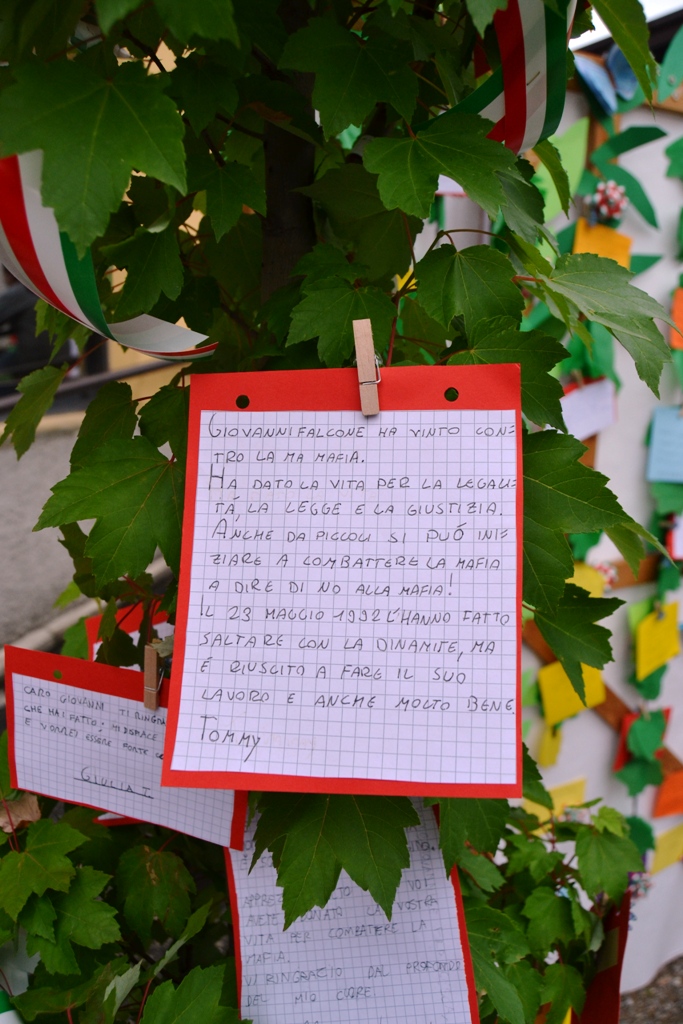 GIOVANNI FALCONE HA VINTO CON=
TRO LA MA MAFIA.
HA DATO LA VITA PER LA LEGALI=
TÁ, LA LEGGE E LA GIUSTIZIA.
ANCHE DA PICCOLI SI PUÓ INI=
ZIARE A COMBATTERE LA MAFIA
A DIRE DI NO ALLA MAFIA!
IL 23 MAGGIO 1992 L'HANNO FATTO
SALTARE CON LA DINAMITE, MA
É RIUSCITO A FARE IL SUO
LAVORO E ANCHE MOLTO BENE.
TOMMY
CARO GIOVANNI TI RINGRA
CHE HAI FATTO; MI DISPIACE
E VORREI ESSERE FORTE
GIULIA I.
VOI
AVETE DONATO LA VOSTRA
VITA PER COMBATTERE LA
MAFIA.
VI RINGRAZIO DAL PROFONDO
DEL MIO CUORE.